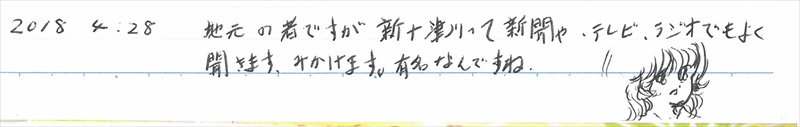 2018 4:28 地元の者ですが新十津川って新聞や、テレビ、ラジオでもよく
聞きます、みかけます。有名なんですね.